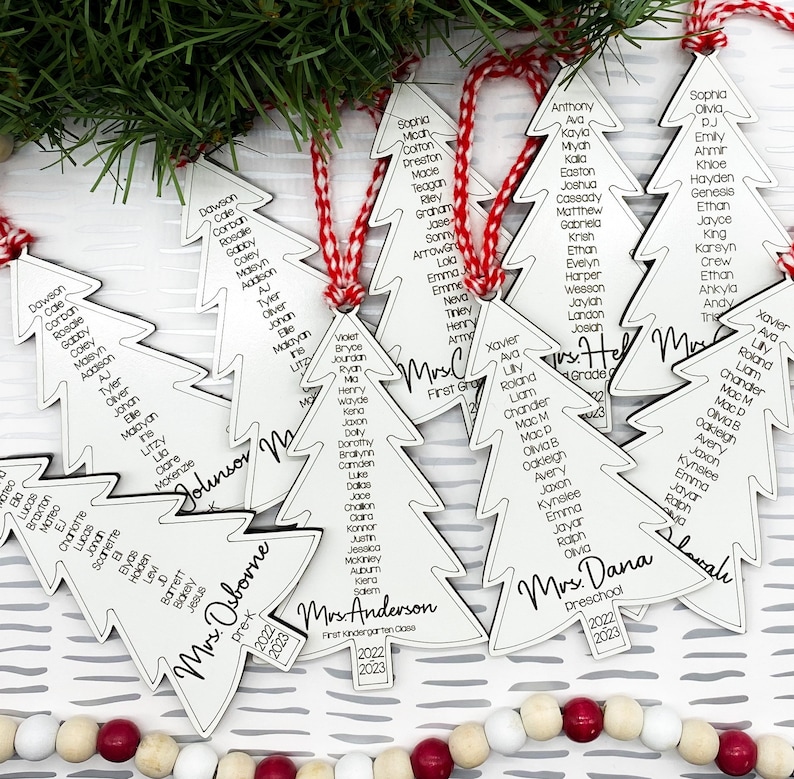 Sophia
Micah
Colton
Preston
Macie
Teagan
Riley
Graham
Jase
Sonny
ArrowGra
Lola
Emma
Emme
Neva
Tinley
Henry
Arm
Mrs.C
First Gra
Anthony
Ava
Kayla
Miyah
Kalia
Easton
Joshua
Cassady
Matthew
Gabriela
Krish
Ethan
Evelyn
Harper
Wesson
Jaylah
Landon
Josiah
Mrs.Hel
d Grade C
2022
2023
Sophia
Olivia
PJ
Emily
Ahmir
Khloe
Hayden
Genesis
Ethan
Jayce
King
Karsyn
Crew
Ethan
Ahkyla
Andy
Trist
Mrs.
Dawson
Calle
Corban
Rosalie
Gabby
Coley
Maisyn
Addison
AJ
Tyler
Oliver
Johan
Ellie
Malayan
Iris
Litzy
Dawson
Calle
Corban
Rosalie
Gabby
Coley
Maisyn
Addison
AJ
Tyler
Oliver
Johan
Ellie
Malayan
Iris
Litzy
Lilia
Claire
McKenzie
Johnson
-K
Violet
Bryce
Jourdan
Ryan
Mia
Henry
Wayde
Kena
Jaxon
Dolly
Dorothy
Brailynn
Camden
Luke
Dallas
Jace
Challion
Claira
Konnor
Justin
Jessica
McKinley
Auburn
Kiera
Salem
Mrs.Anderson
First Kindergarten Class
2022
2023
Xavier
Ava
Lilly
Roland
Liam
Chandler
Mac M
Mac P
Olivia B
Oakleigh
Avery
Jaxon
Kynslee
Emma
Jayar
Ralph
Olivia
Mrs.Dana
preschool
2022
2023
Xavier
Ava
Lilly
Roland
Liam
Chandler
Mac M
Mac P
Olivia B
Oakleigh
Avery
Jaxon
Kynslee
Emma
Jayar
Ralph
Olivia
Mateo
Ella
Lucas
Braxton
Mateo
EJ
Charlotte
Lucas
Jonah
Scarlette
Eli
Elyas
Holden
Levi
JD
Barrett
Blakely
Jesus
Mrs.Osborne
pre-K
2022
2023